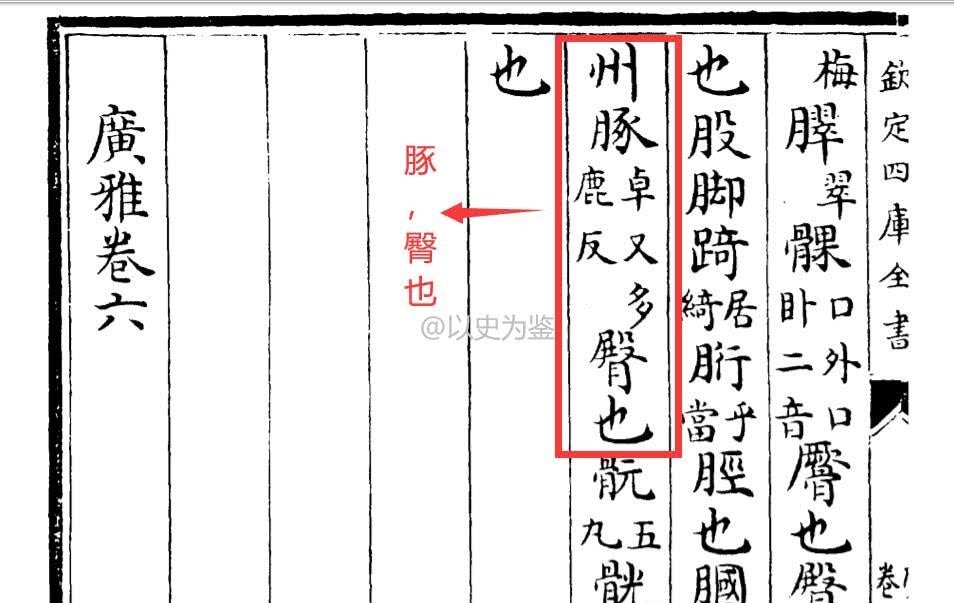 欽定四庫全書
卷
梅臎翠髁口外口二音也臀
也股脚踦居綺胻乎當脛也膕
州豚卓又多鹿反臀也五丸
也
豚，臀也
@以史为鉴
廣雅卷六